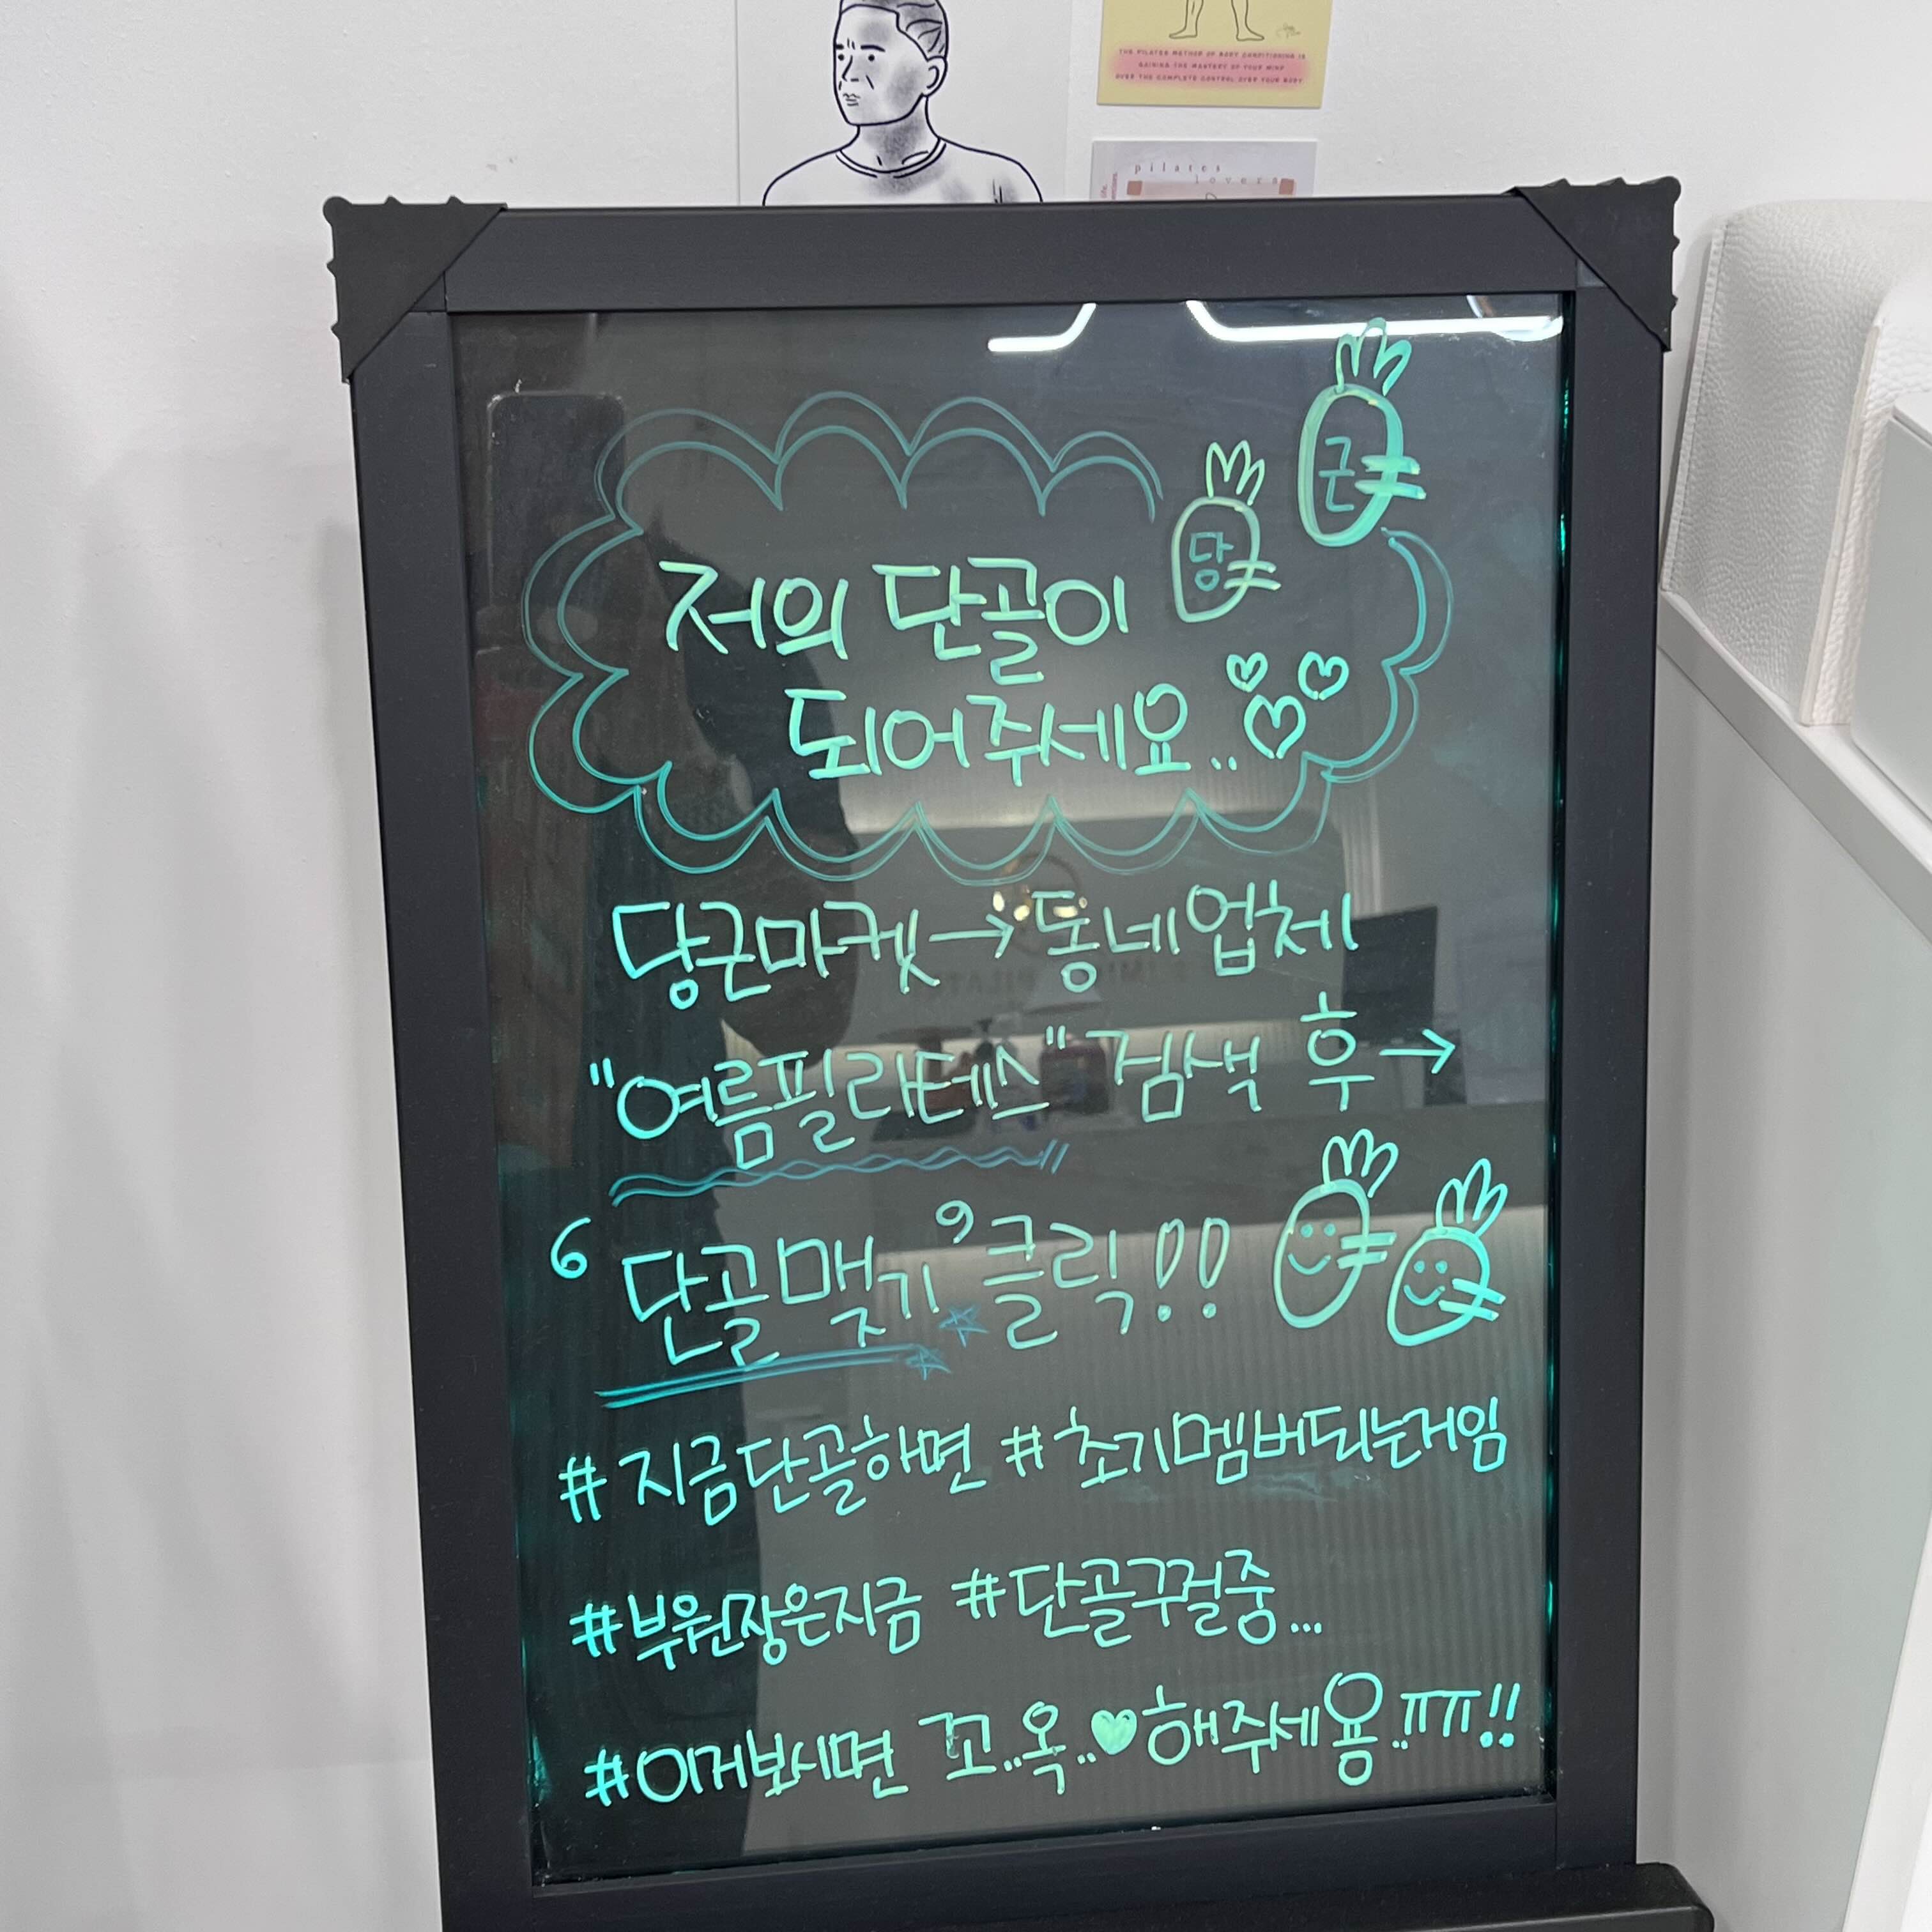 THE PILATES METHOD OF BODY CONDITIONING IS
GAINING THE MASTERY OF YOUR MIND
OVER THE COMPLETE CONTROL OVER YOUR BODY
pilates
lovers
근
당
저의 단골이
되어주세요..♡♡♡
당근마켓→동네업체
"여름필라테스" 검색 후→
'단골맺기' 클릭!!
#지금단골하면 #초기멤버되는거임
#부원장은지금 #단골구걸중...
#이거보시면 꼬..옥..♥해주세욤..ㅠㅠ!!